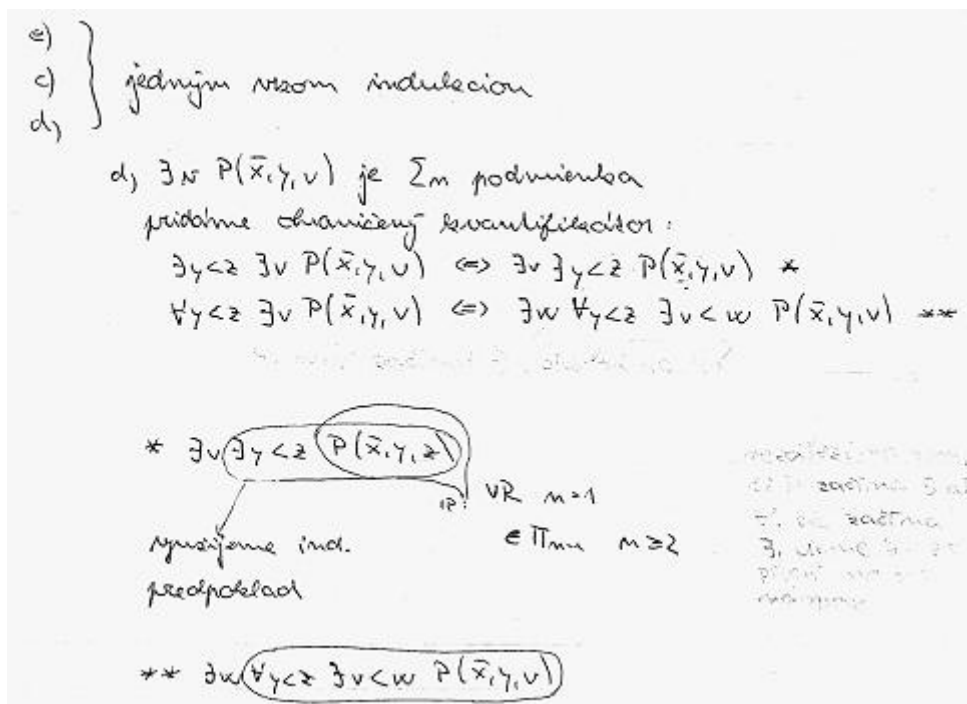 e)
c) } jedným vrzom indukciou
d)
d) ∃v P(x̄,y,v) je Σn podmienka
pridáme ohraničený kvantifikátor:
∃y<z ∃v P(x̄,y,v) <=> ∃v ∃y<z P(x̄,y,v) *
∀y<z ∃v P(x̄,y,v) <=> ∃w ∀y<z ∃v<w P(x̄,y,v) **
* ∃v ∃y<z P(x̄,y,z)
IP: VR n=1
∈ Πn-1 n≥2
využijeme ind.
predpoklad
** ∃w ∀y<z ∃v<w P(x̄,y,v)